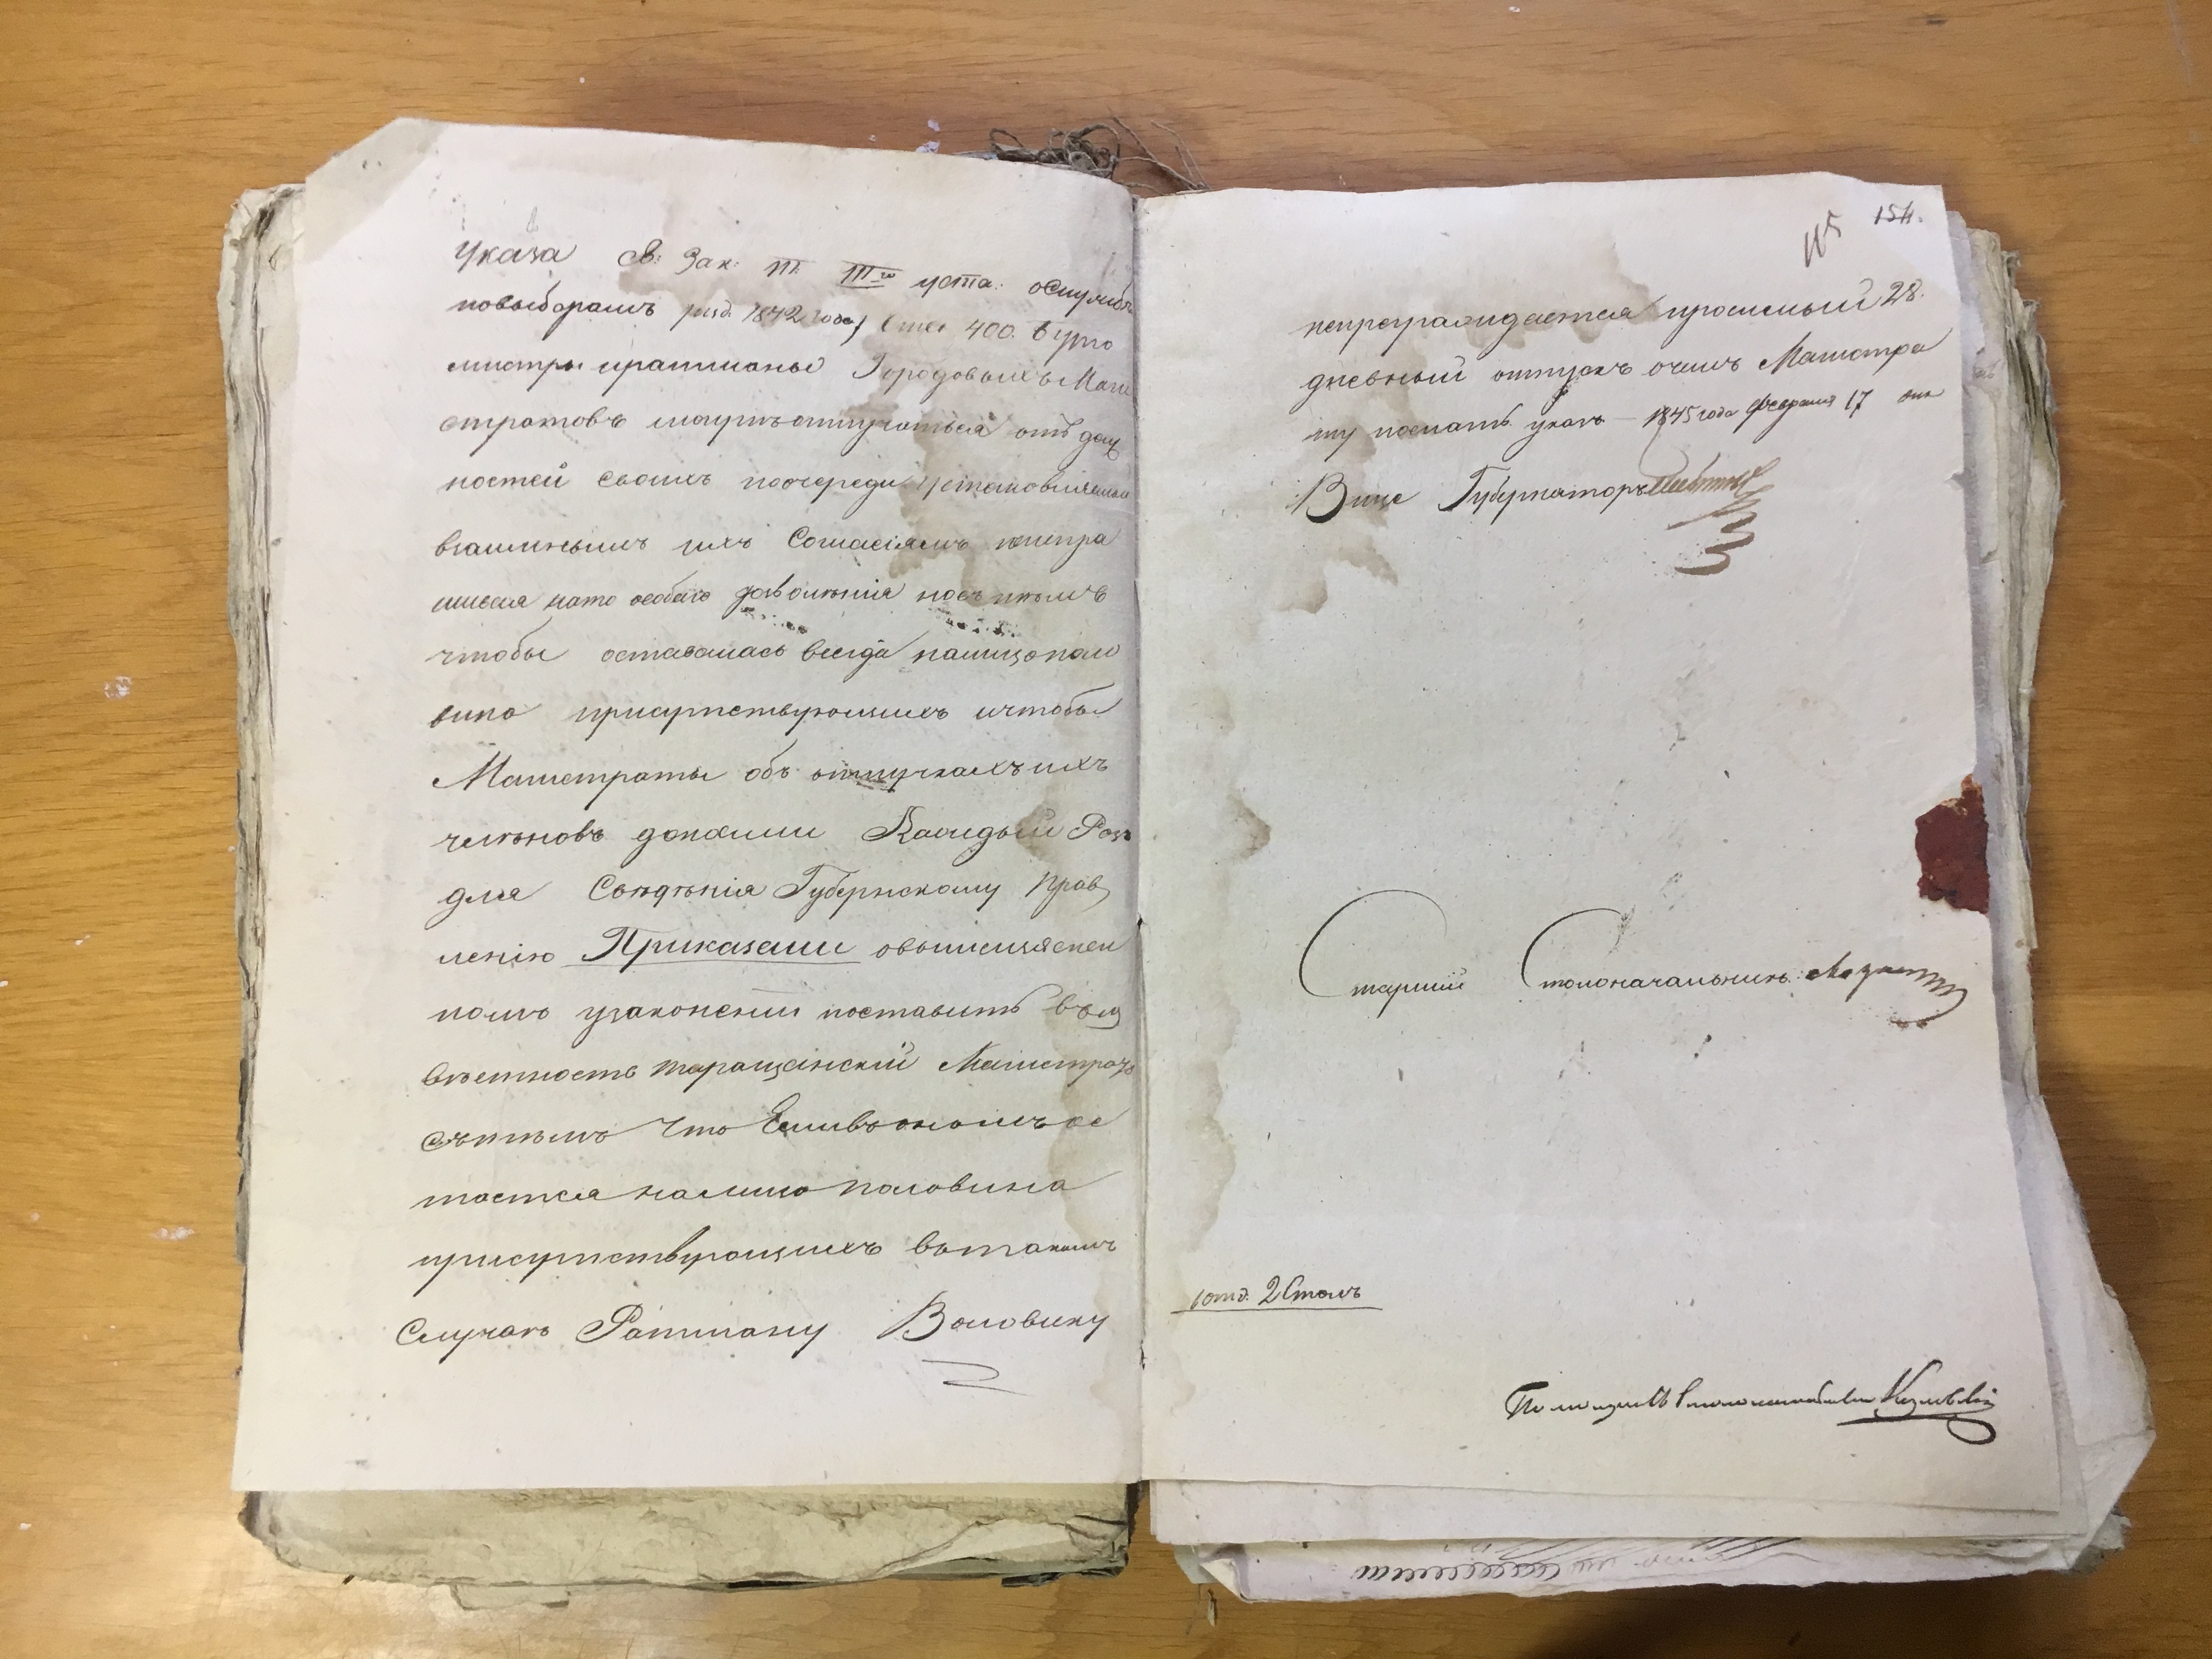 указа Св: Зак: т. III го уста: ослужбѣ
повыборамъ изд. 1842 года) Стат 400. Бурго
мистры иратманы Городовыхъ Маги
стратовъ могутъ отлучаться отъ долж
ностей своихъ поочереди установляемой
взаимнымъ ихъ Согласіемъ неиспра
шивая нато особаго дозволенія носъ тѣмъ
чтобы оставалась всегда налицо поло
вина присутствующихъ ичтобы
Магистраты объ отлучкахъ ихъ
членовъ доносили Каждый Разъ
для Свѣдѣнія Губернскому Прав
ленію Приказали овышеизяснен
номъ узаконеніи поставить въиз
вѣстность таращанскій Магистратъ
стѣмъ что Есливъ ономъ ос
тается налицо половина
присутствующихъ вътакомъ
Случаѣ Ратману Воловику
115 154.
непреграждается просимый 28.
дневный отпускъ очемъ Магистра
ту послать указъ – 1845 года февраля 17 дня
Вице Губернаторъ
Старшій Столоначальникъ
1 отд. 2 Столъ
Помощникъ Столоначальника